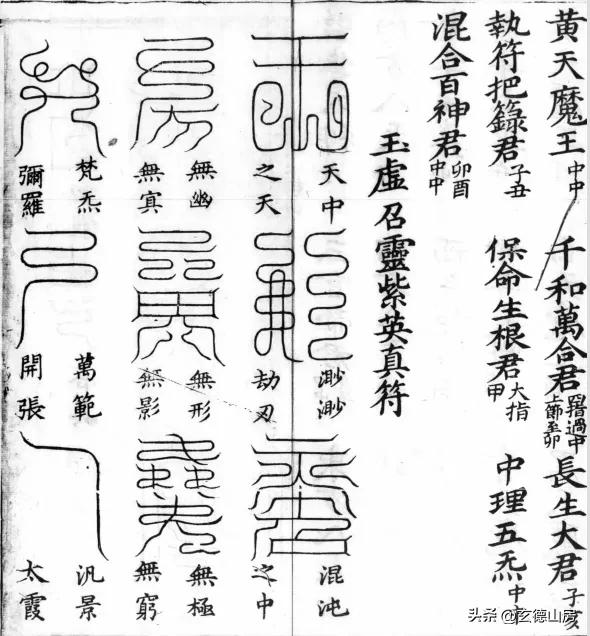 黄天魔王 中中 千和萬合君 過中上節至卯 長生大君 子亥
執符把籙君 子丑 保命生根君 大指甲 中理五炁 中
混合百神君 卯酉中中
玉虛召靈紫英真符
天中
之天
渺渺
劫刃
混沌
之中
無幽
無㝠
無形
無影
無極
無窮
梵炁
彌羅
萬範
開張
汎景
太霞
头条 @玄德山房